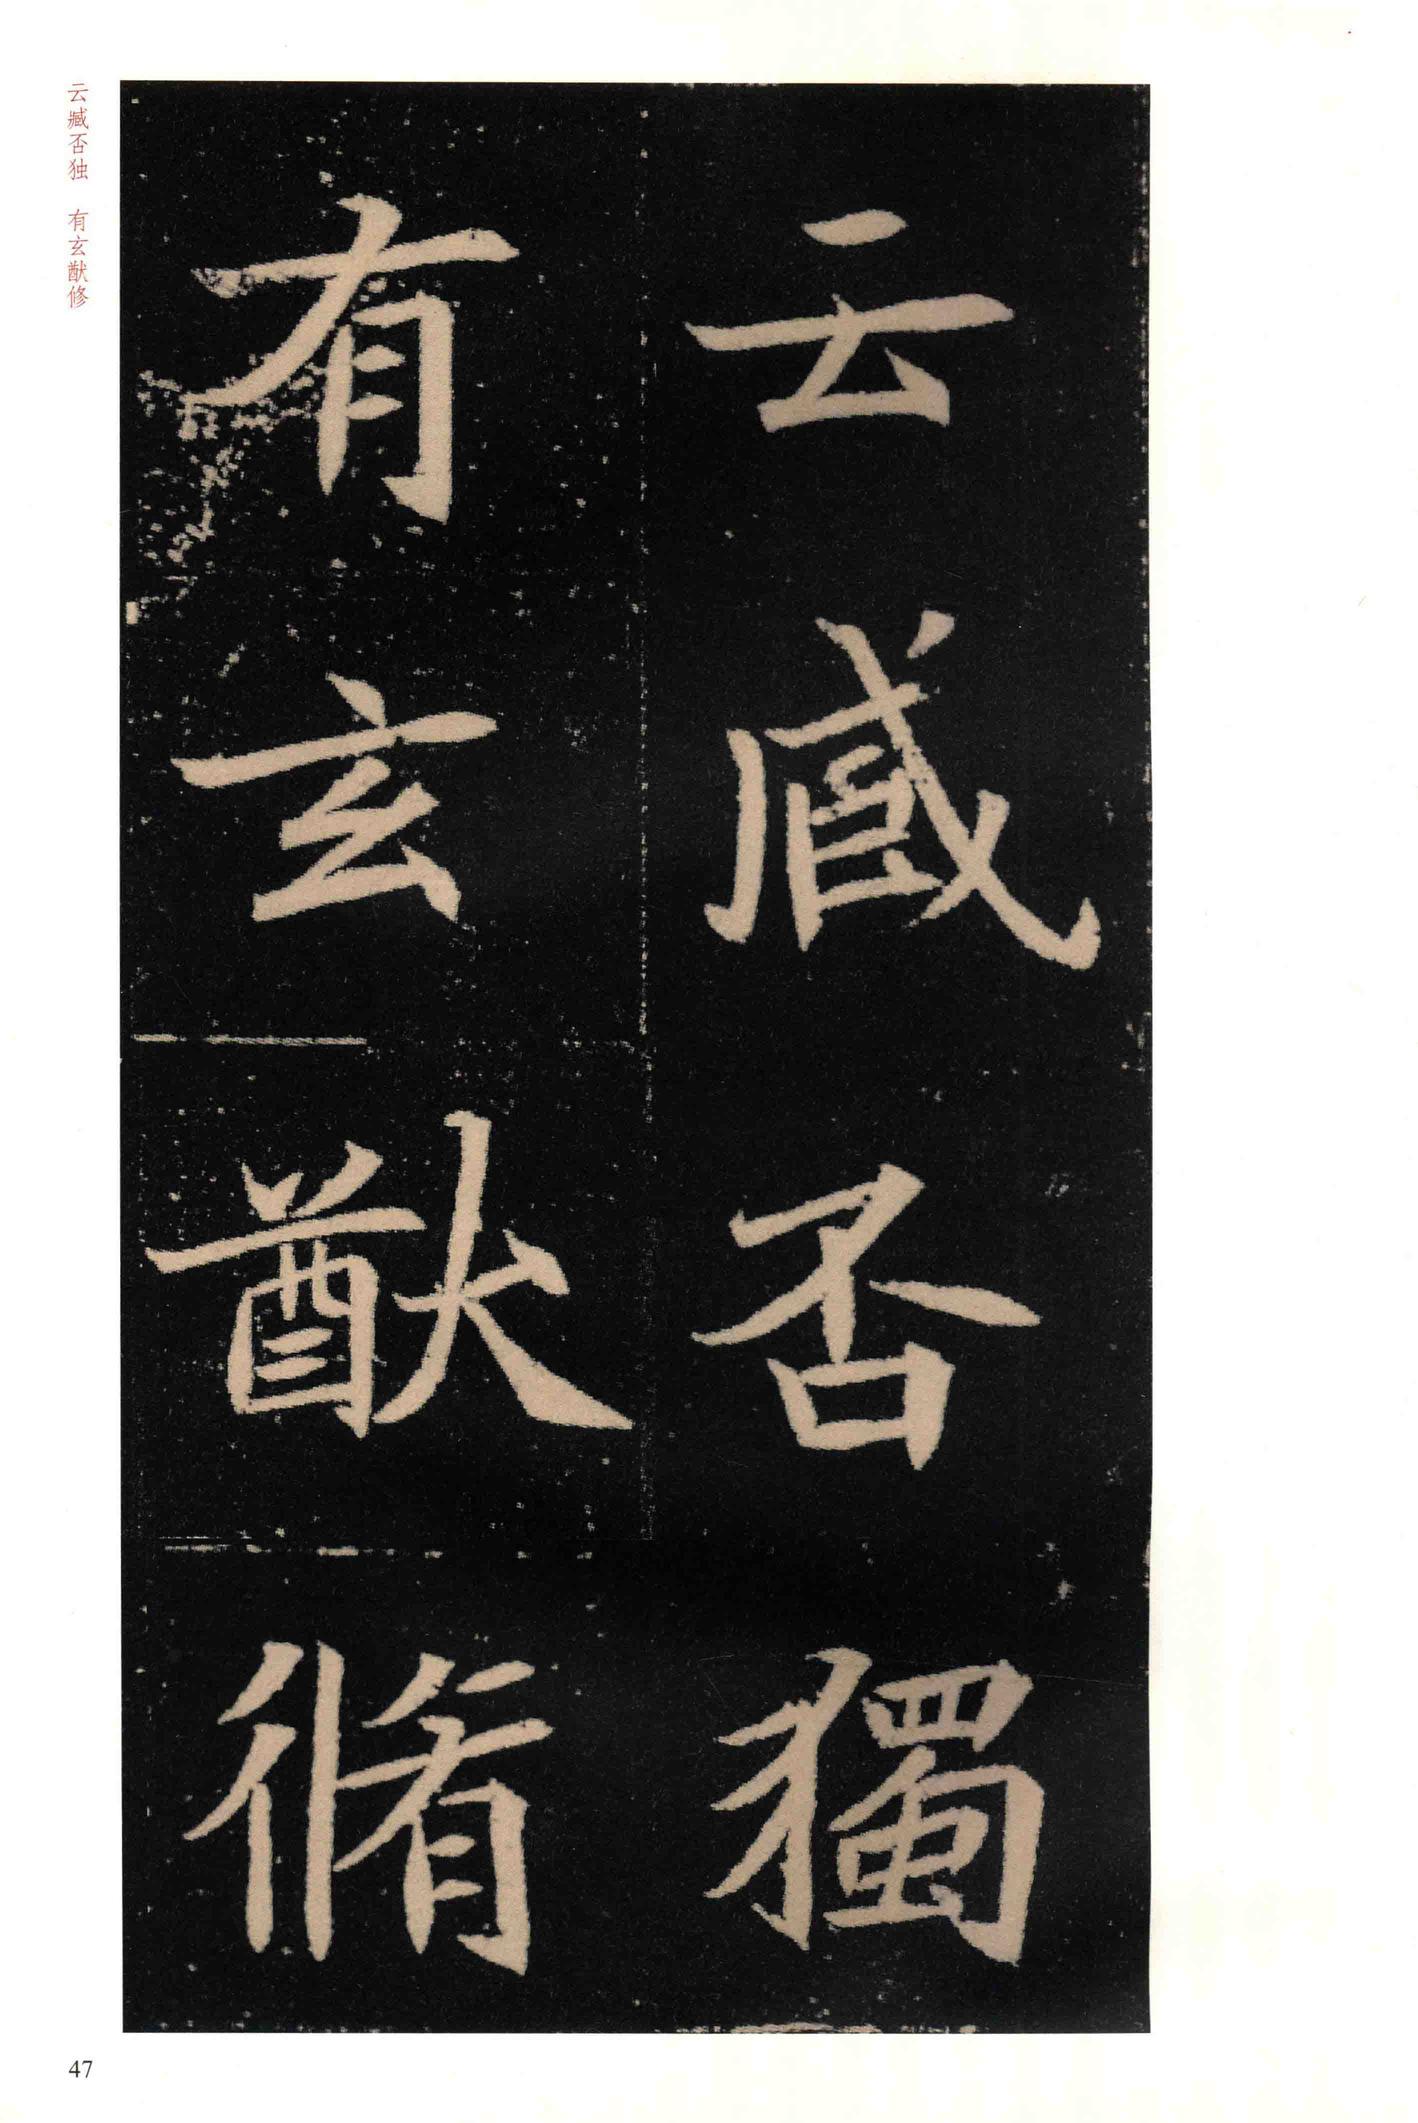 云臧否獨
有玄猷脩
云臧否独 有玄猷修
47